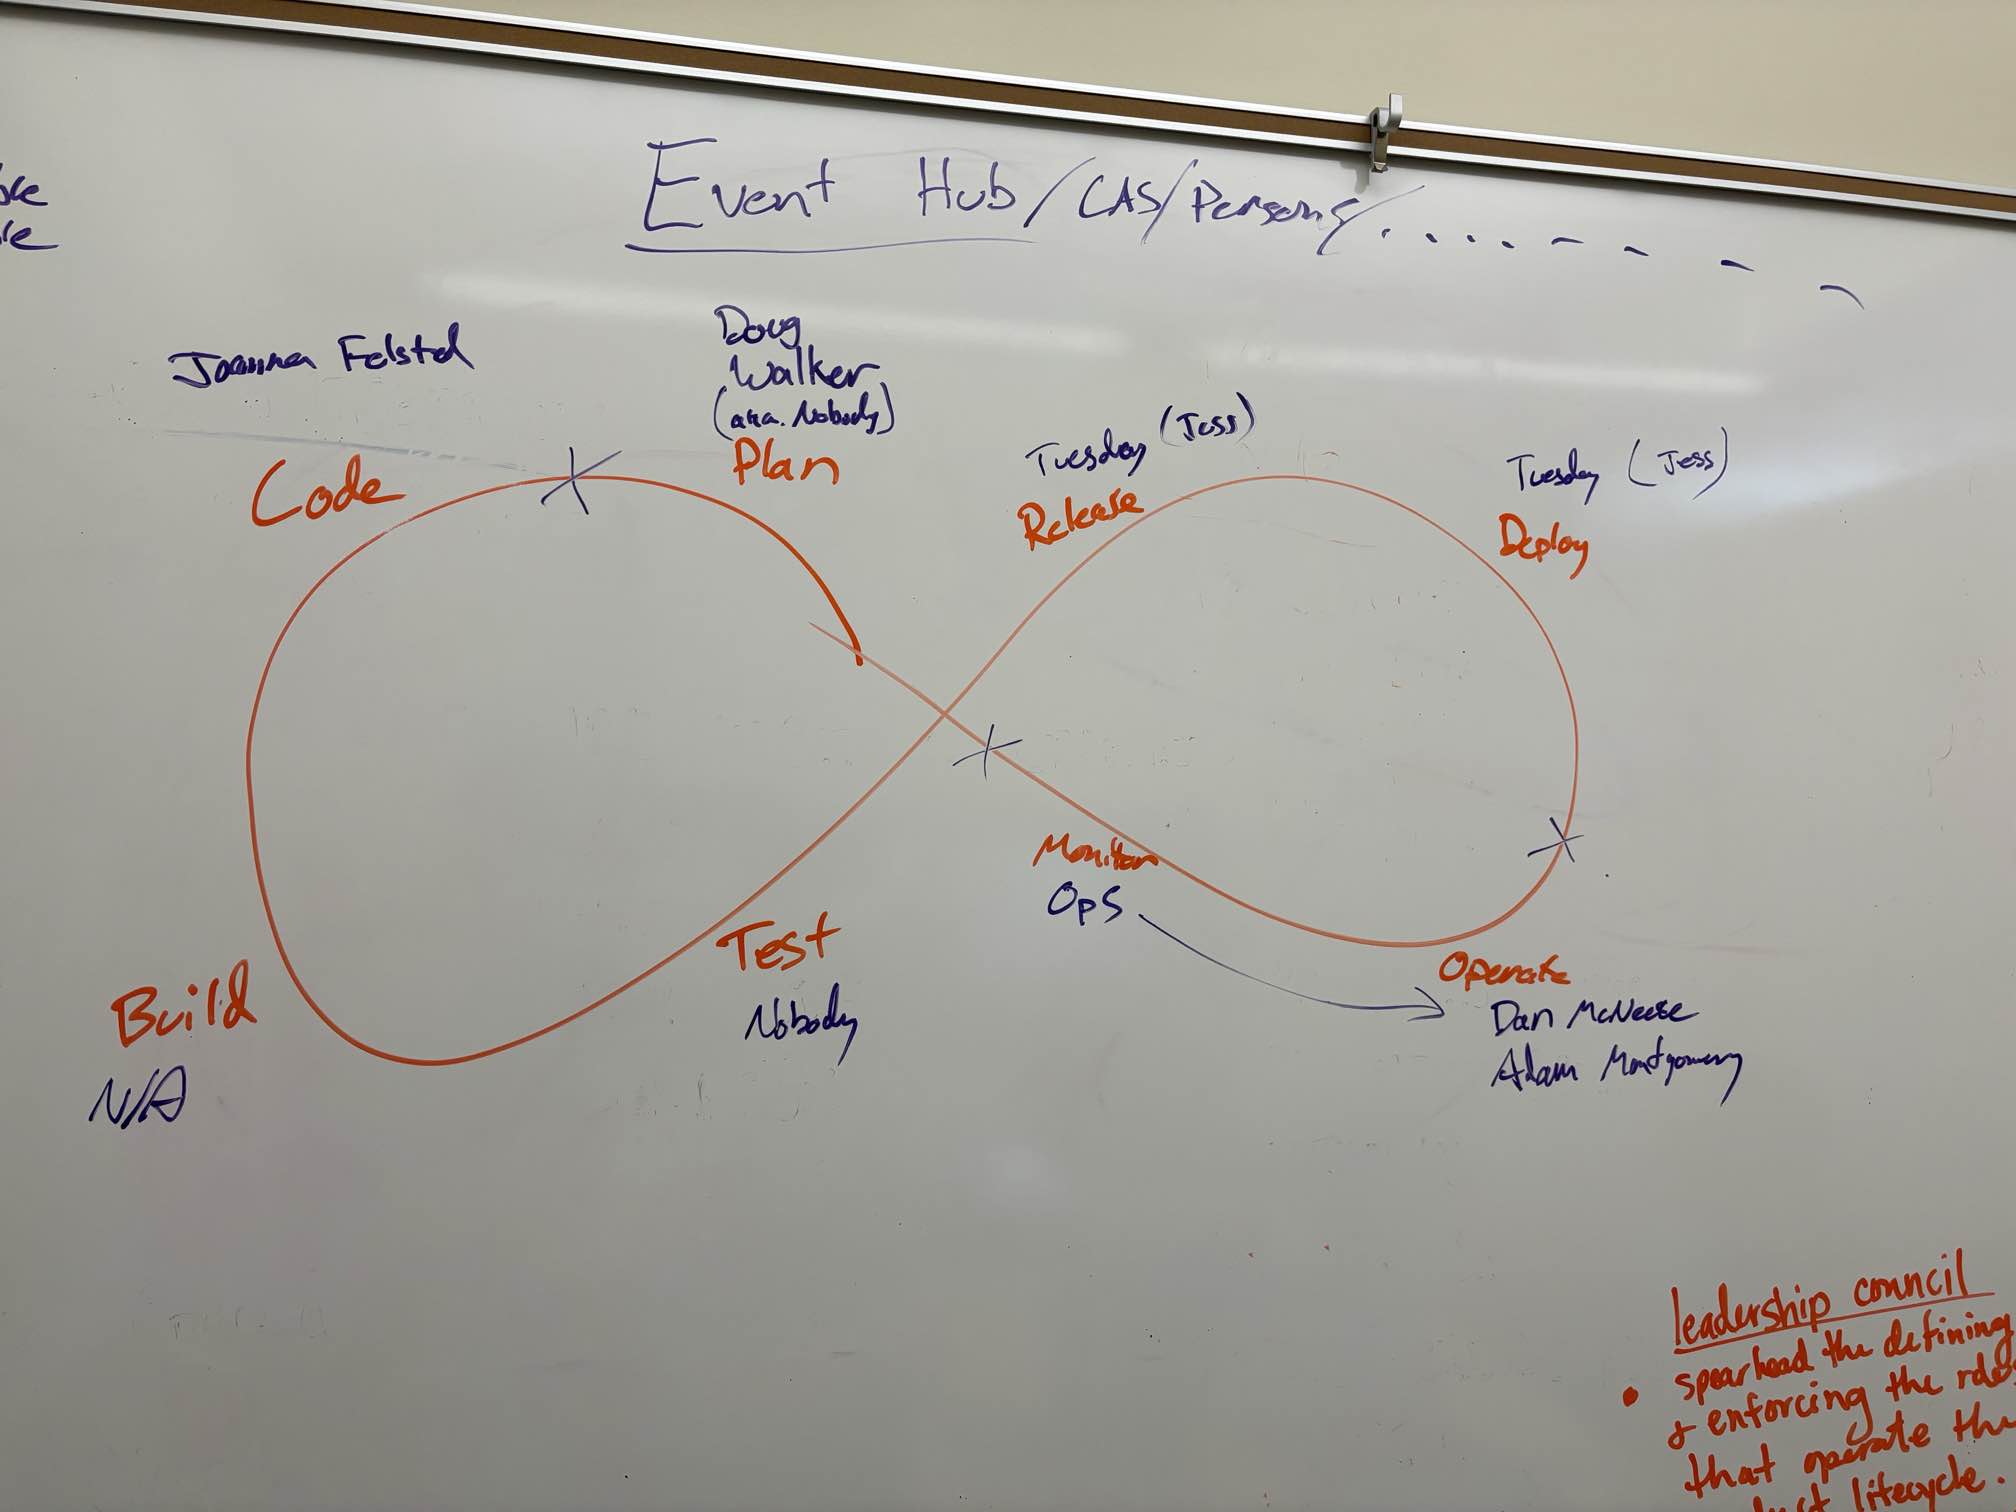 Event Hub/CAS/Persons/.....----
Joanna Felsted
Doug
Walker
(aka. Nobody)
Code
Plan
Tuesday (Jess)
Release
Tuesday (Jess)
Deploy
Monitor
Ops
Test
Nobody
Operate
Dan McNeese
Adam Montgomery
Build
N/A
leadership council
• spearhead the defining
& enforcing the roles
that operate the
lifecycle.